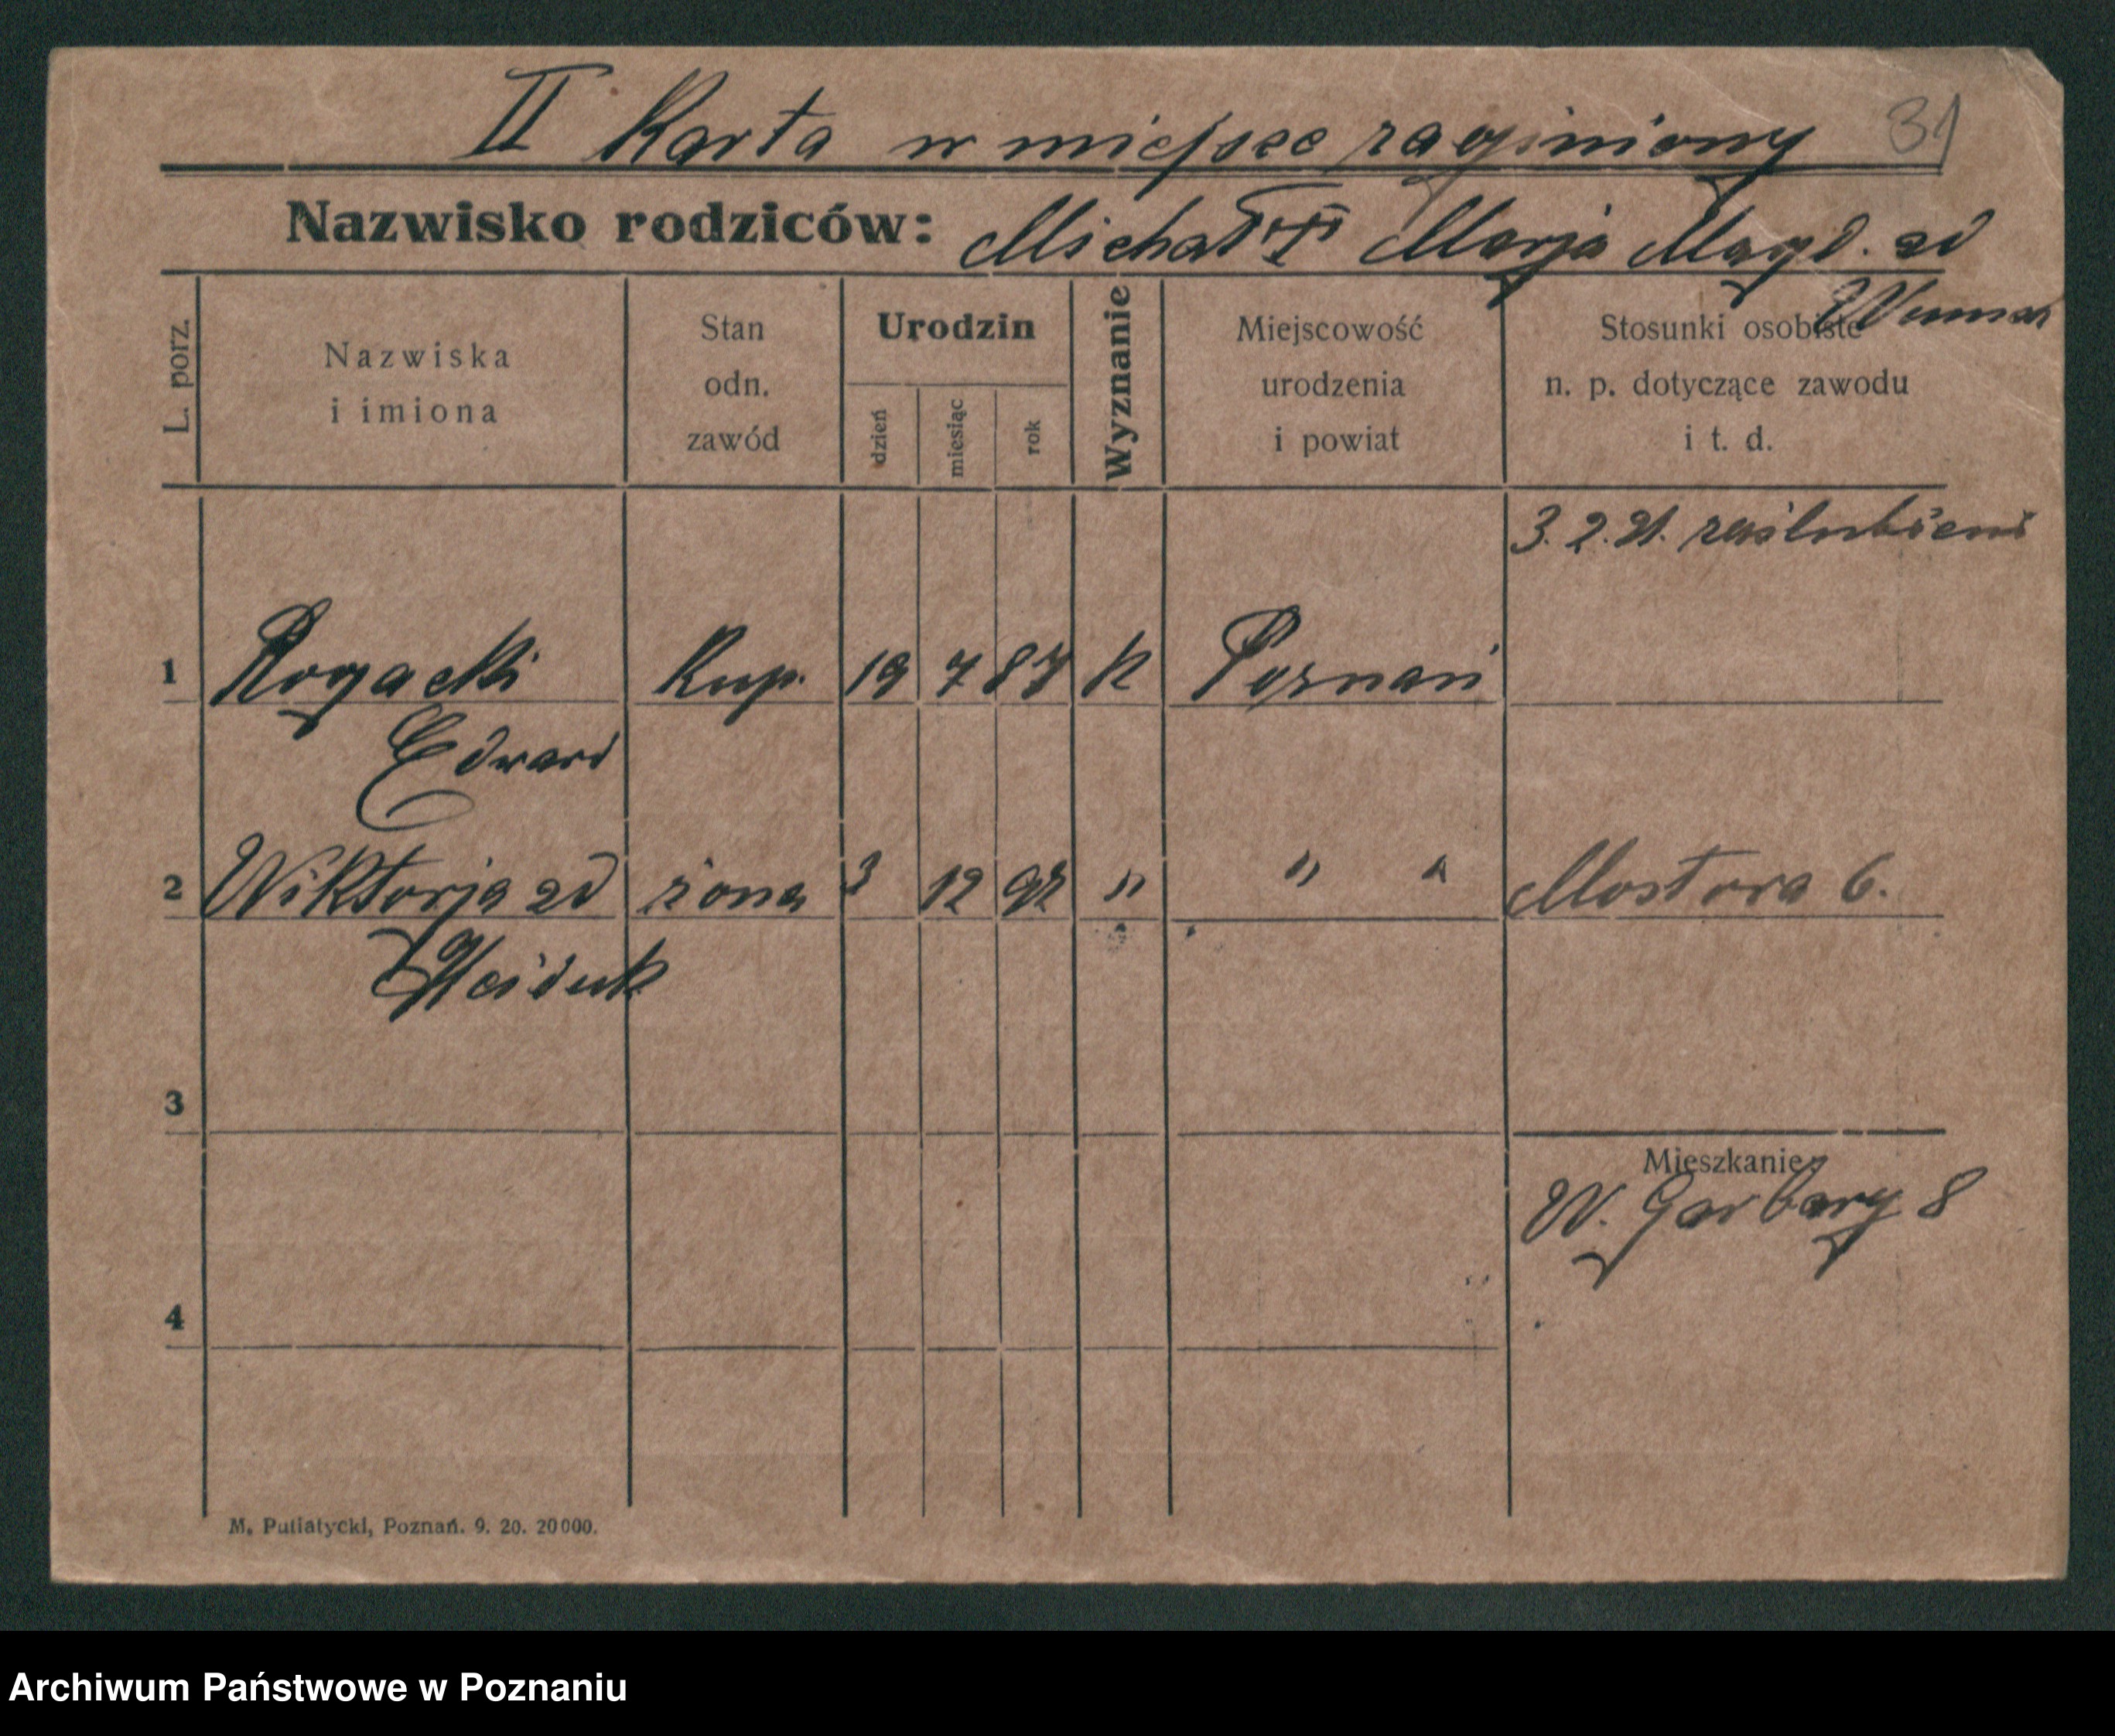 II Karta w miejsce zaginiony
31
Nazwisko rodziców: Michał Marja Magd. zd
L. porz.
Nazwiska
i imiona
Stan
odn.
zawód
Urodzin
dzień
miesiąc
rok
Wyznanie
Miejscowość
urodzenia
i powiat
Stosunki osobiste
n. p. dotyczące zawodu
i t. d.
3. 2. 21. zaślubieni
1 Rogacki Kup. 19 7 87 k Poznań
Edward
2 Wiktorja zd żona 3 12 92 " " " Mostowa 6.
Hejduk
3
Mieszkanie
W. Garbary 8
4
M. Putiatycki, Poznań. 9. 20. 20000.
Archiwum Państwowe w Poznaniu